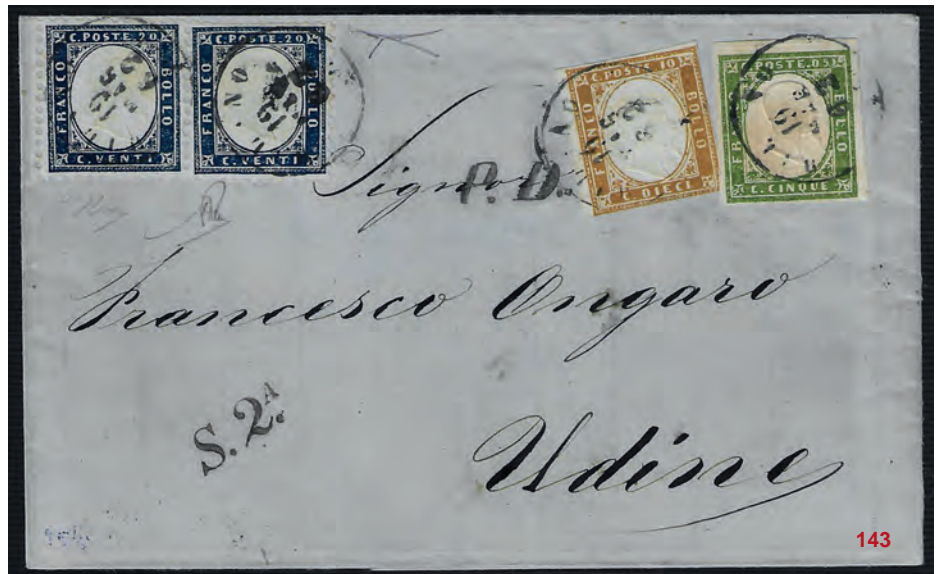 C. POSTE. 20
FRANCO
BOLLO
C. VENTI
C. POSTE. 20
BOLLO
C. VENTI
C. POSTE 10
FRANCO
BOLLO
C. DIECI
POSTE. 05
BOLLO
C. CINQUE
Signor
P. D.
Francesco Ongaro
S. 2.A
Udine
143